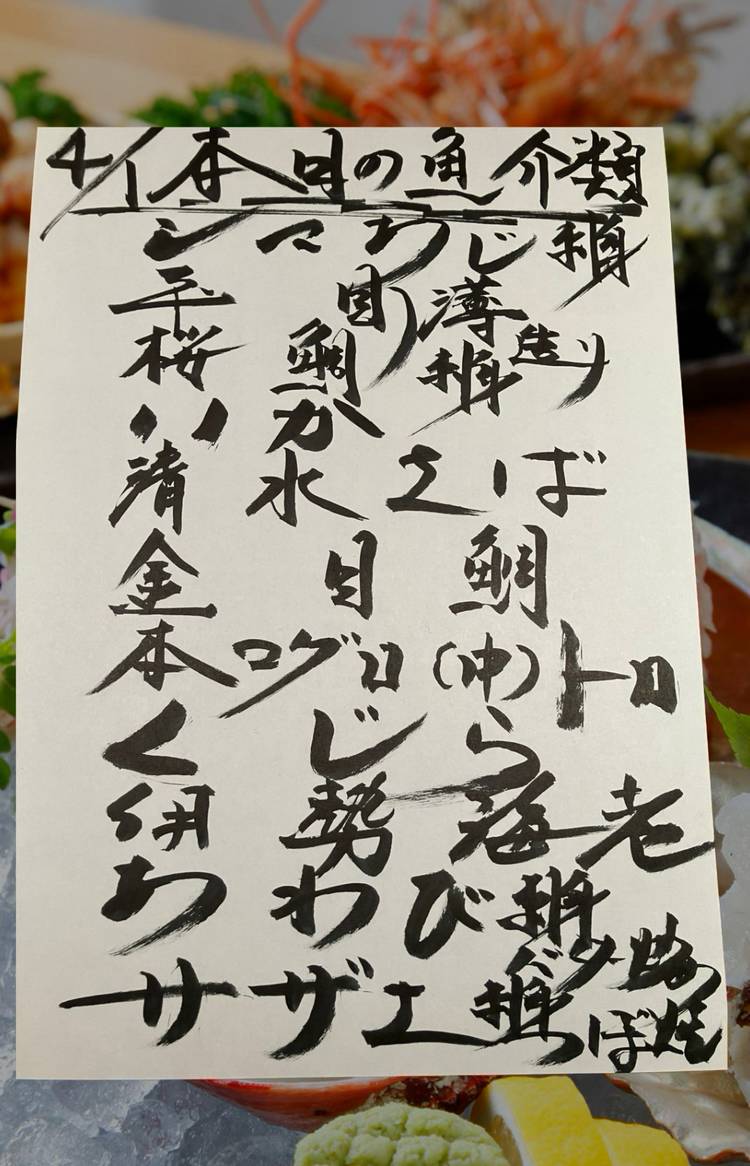 4/1 本日の魚介類
シマあじ 刺身
平目 薄造り
桜鯛 刺身
ハガ
清水さば
金目鯛
本マグロ(中)トロ
くじら
伊勢海老
あわび 刺身 バタ焼
サザエ 刺身 つぼ焼